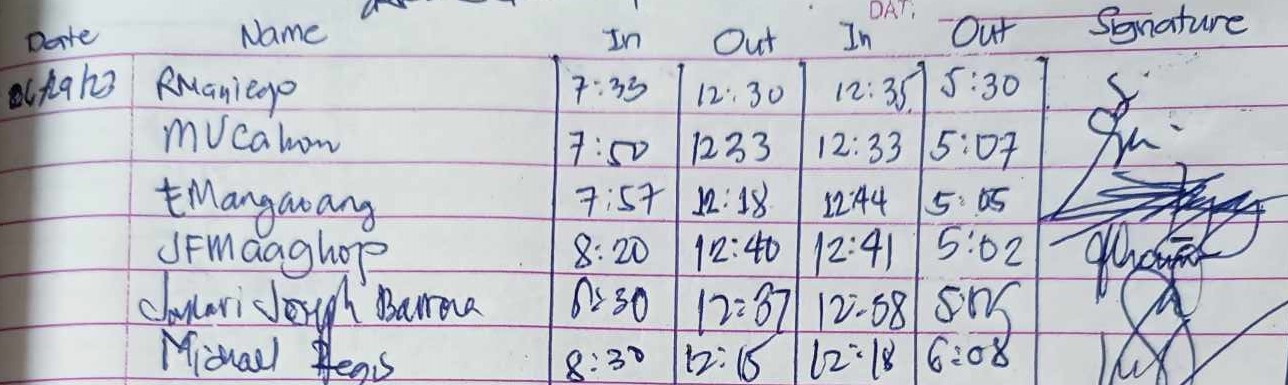 DAT
Date Name In Out In Out Signature
RManiego 7:33 12:30 12:35 5:30
MVCahon 7:50 1233 12:33 5:07
EMangawang 7:57 12:18 12:44 5:05
JFMaaghop 8:20 12:40 12:41 5:02
Joseph Barrona 8:30 12:37 12:58 5:05
Michael Regis 8:30 12:15 12:18 6:08